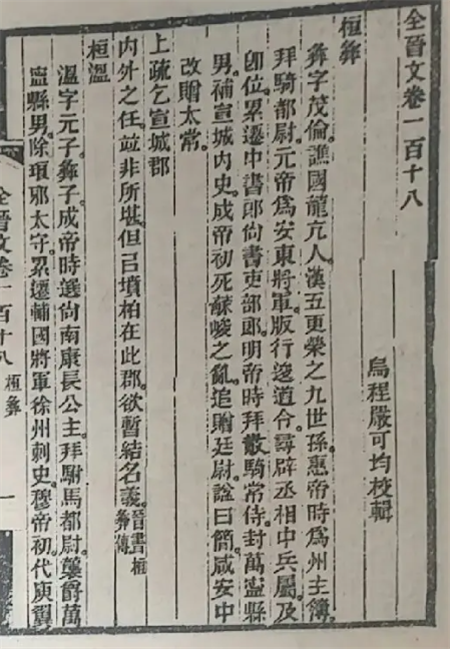 全晉文卷一百十八
烏程嚴可均校輯
桓彝
彝字茂倫譙國龍亢人漢五更榮之九世孫惠帝時爲州主簿
拜騎都尉元帝爲安東將軍版行逡遒令尋辟丞相中兵屬及
卽位累遷中書郎尚書吏部郎明帝時拜散騎常侍封萬寍縣
男補宣城內史成帝初死蘇峻之亂追贈廷尉諡曰簡咸安中
改贈太常
上疏乞宣城郡
內外之任竝非所堪但㠯墳柏在此郡欲暫結名義晉書桓彝傳
桓溫
溫字元子彝子成帝時選尚南康長公主拜駙馬都尉襲爵萬
寍縣男除琅邪太守累遷輔國將軍徐州刺史穆帝初代庾翼
全晉文卷一百十八 桓彝 一